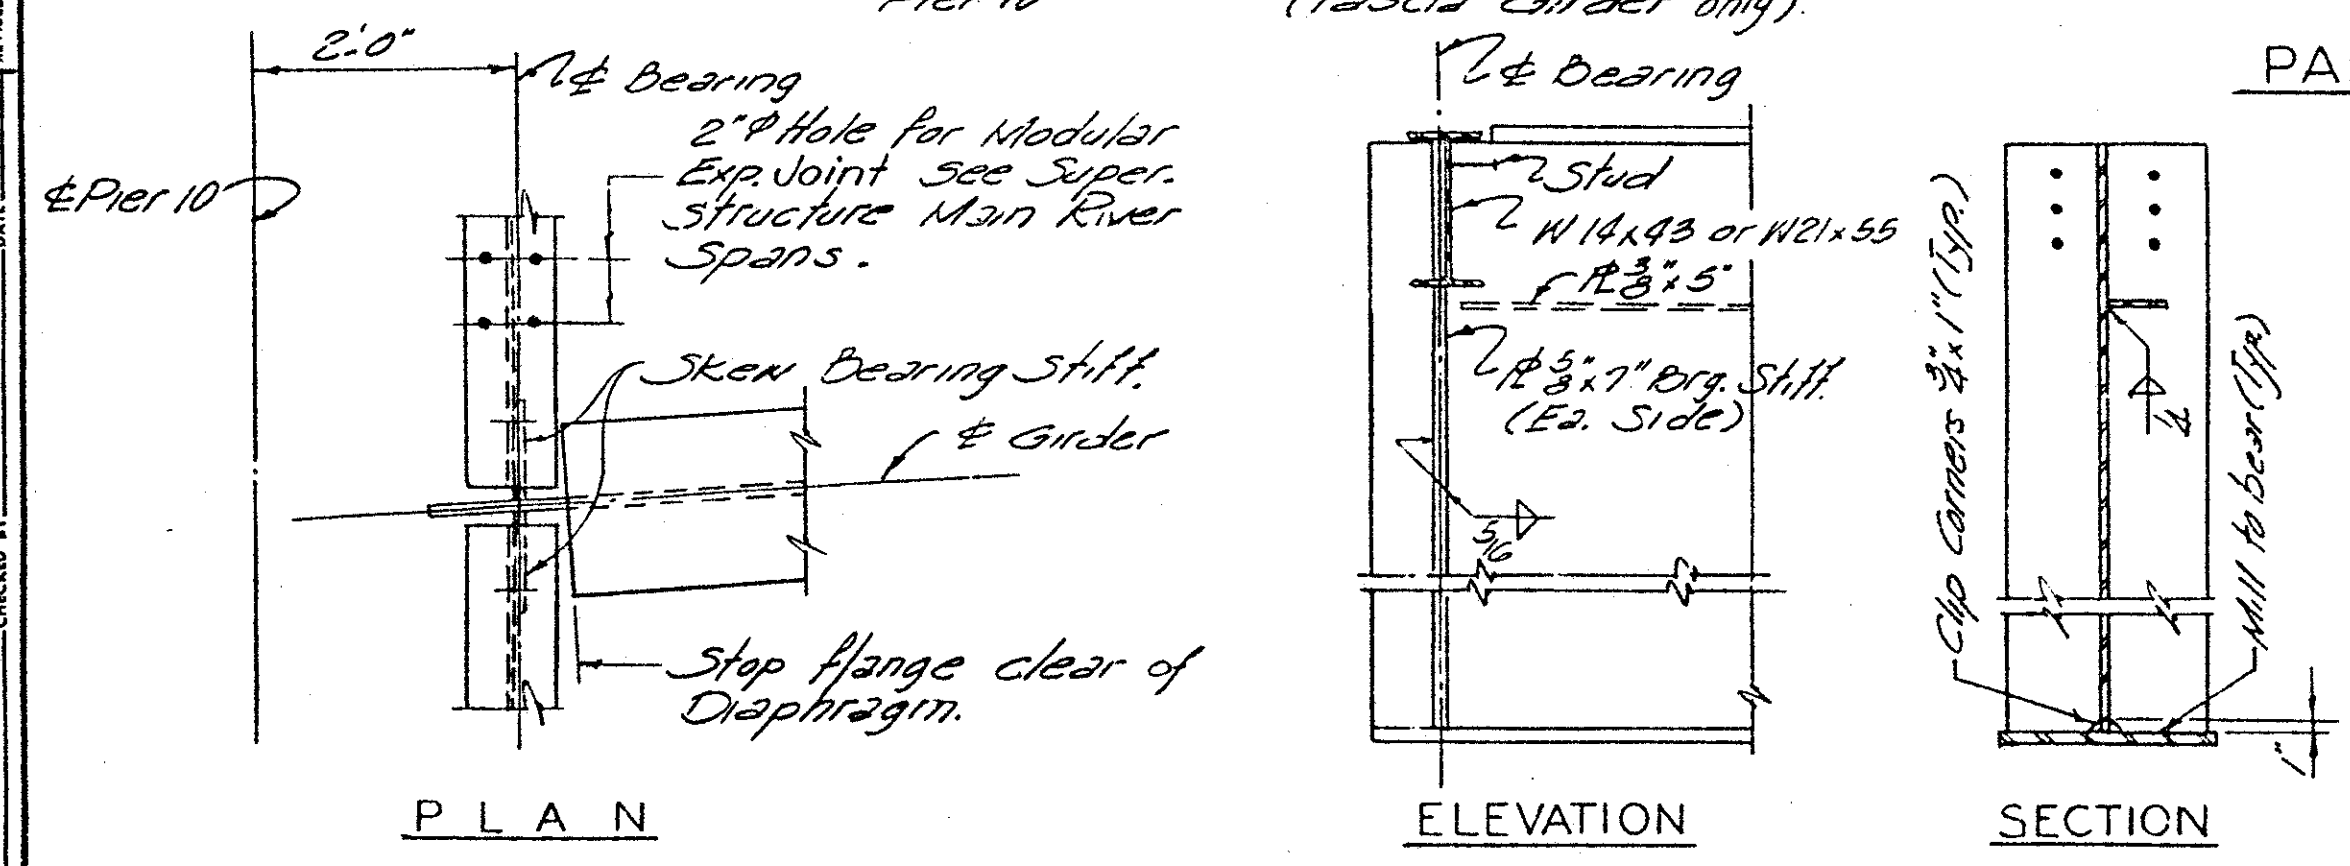 Pier 10
(Fascia Girder only).
2'-0"
℄ Bearing
2"φ Hole for Modular
Exp. Joint see Super-
structure Main River
Spans.
℄ Pier 10
Skew Bearing Stiff.
℄ Girder
Stop flange clear of
Diaphragm.
PLAN
℄ Bearing
Stud
W 14x43 or W21x55
PL 3/8" x 5"
PL 5/8" x 7" Brg. Stiff.
(Ea. Side)
5/16
ELEVATION
PA
Clip Corners 3/4" x 1" (Typ.)
1/4
Mill to bear (Typ)
1"
SECTION
CHECKED BY
DATE